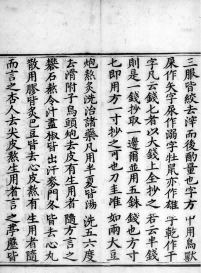 三服皆絞去滓而後酌量也字方中用鳥獸
屎作矢字尿作溺字牡鼠亦作雄字乾作干
字凡云錢匕者以大錢上全抄之若云半錢
則是一錢抄取一邊爾並用五銖錢也方寸
匕即用方一寸抄之可也刀圭准如兩大豆
炮熬炙洗治諸藥凡用半夏皆湯洗五六度
去滑附子烏頭炮去皮有生用者隨方言之
礬石熬令汁盡椒皆出汗麥門冬皆去心丸
散用膠皆炙巴豆皆去心皮熬有生用者隨
而言之杏人去尖皮熬生用者言之葶藶皆